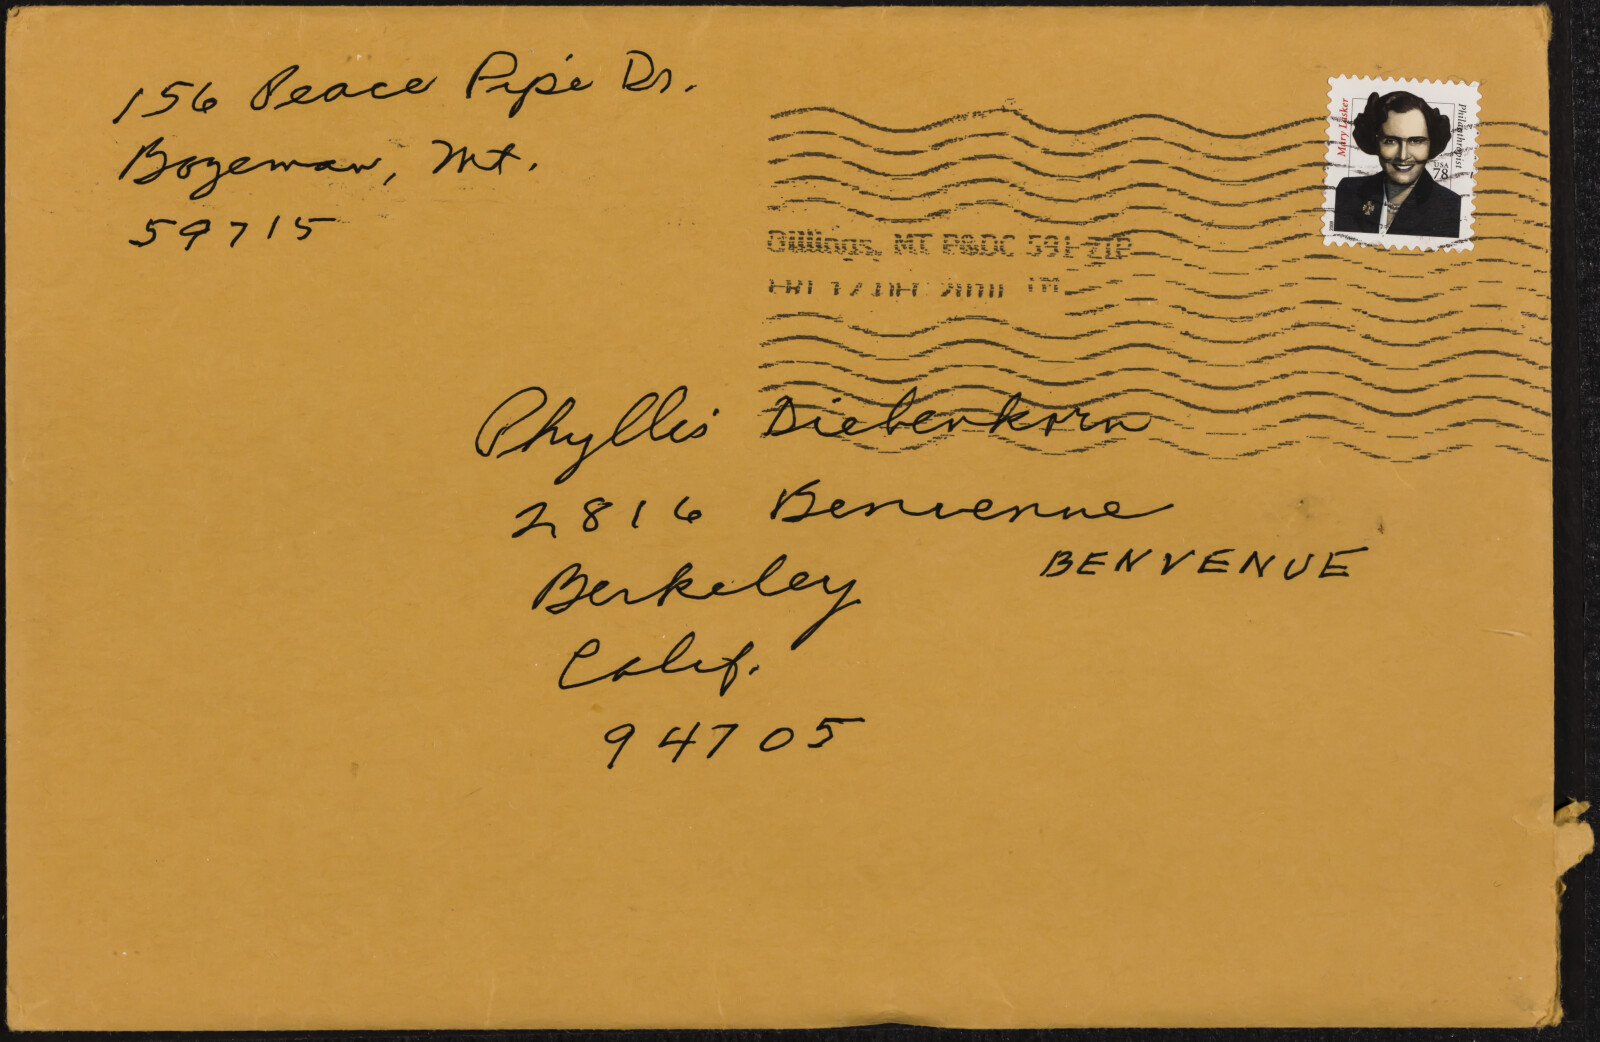 156 Peace Pipe Dr.
Bozeman, Mt.
59715
Mary Lasker
Philanthropist
USA
78
Billings, MT P&DC 591 ZIP
FRI 17 2010 PM
Phyllis Diebenkorn
2816 Benvenue
BENVENUE
Berkeley
Calif.
94705